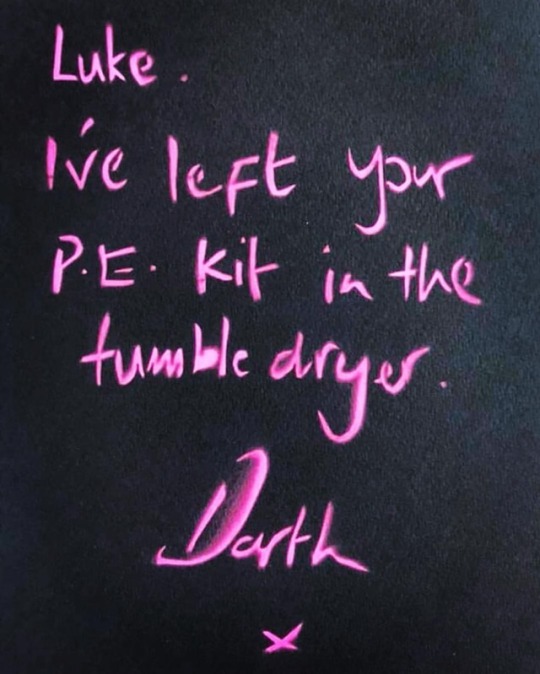 Luke.
I've left your
P.E. Kit in the
tumble dryer.
Darth
x